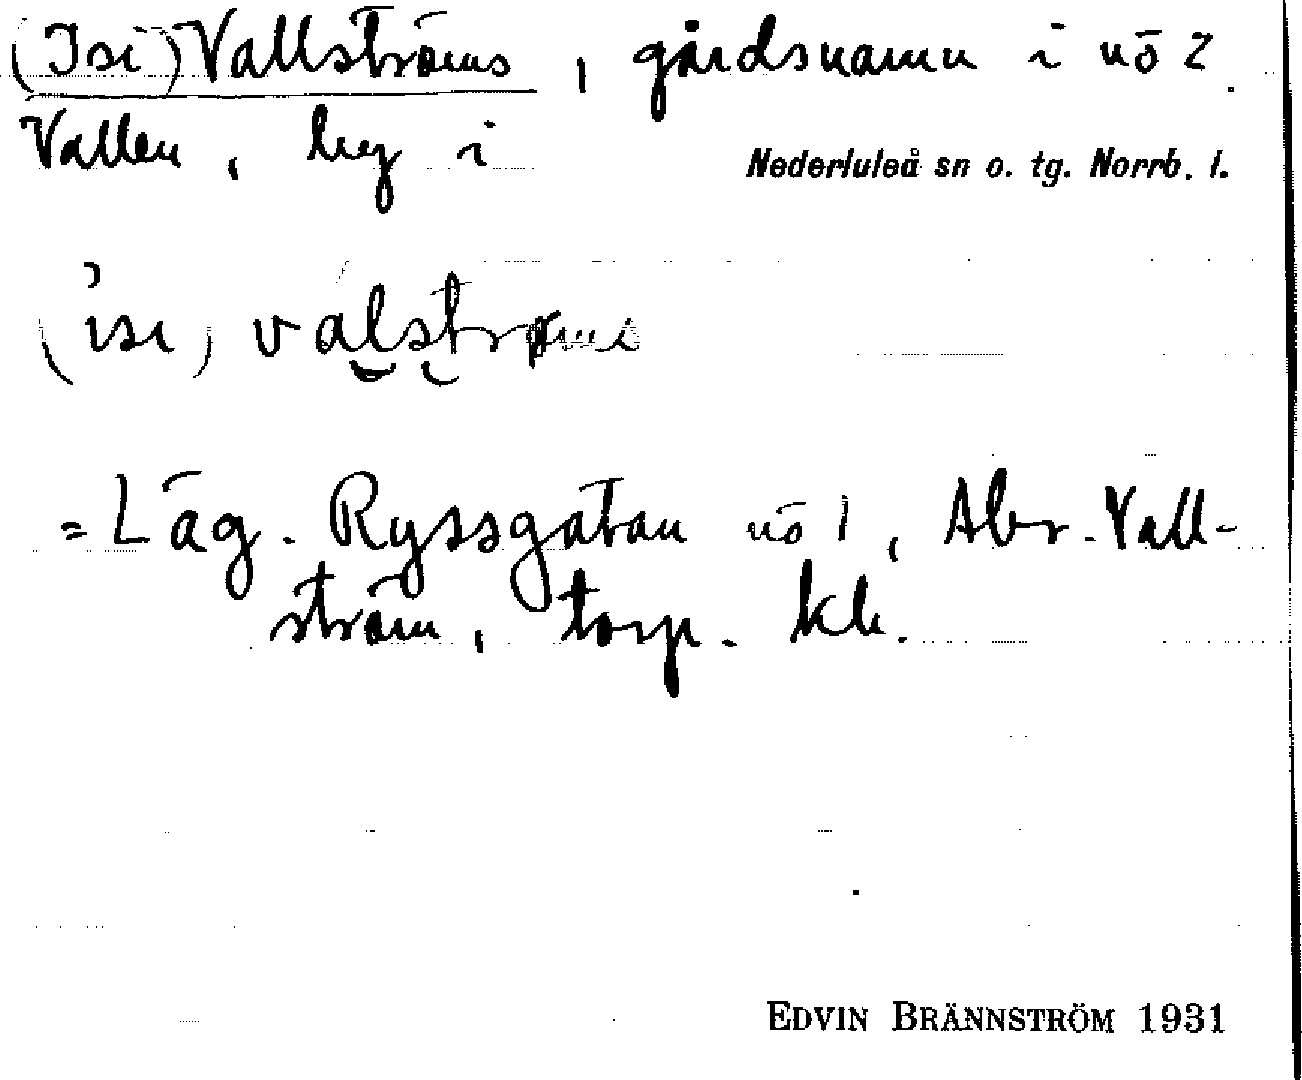 (Isi) Vallströms, gårdsnamn i nö 2
Vallen, by i Nederluleå sn o. tg. Norrb. l.
(isi) valstrømi
= Läg. Ryssgatan nö 1, Abr. Vall-
ström, torp. kk.
EDVIN BRÄNNSTRÖM 1931